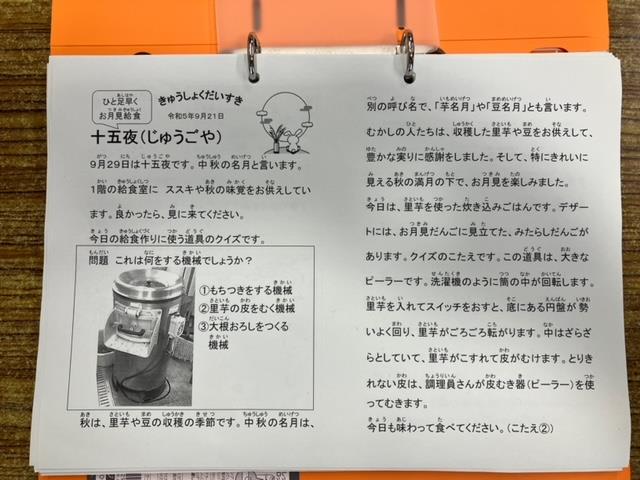 ひと足早く
お月見給食
きゅうしょくだいすき
令和5年9月21日
十五夜(じゅうごや)
9月29日は十五夜です。中秋の名月と言います。
1階の給食室に ススキや秋の味覚をお供えしてい
ます。良かったら、見に来てください。
今日の給食作りに使う道具のクイズです。
問題 これは何をする機械でしょうか?
①もちつきをする機械
②里芋の皮をむく機械
③大根おろしをつくる
機械
秋は、里芋や豆の収穫の季節です。中秋の名月は、
別の呼び名で、「芋名月」や「豆名月」とも言います。
むかしの人たちは、収穫した里芋や豆をお供えして、
豊かな実りに感謝をしました。そして、特にきれいに
見える秋の満月の下で、お月見を楽しみました。
今日は、里芋を使った炊き込みごはんです。デザー
トには、お月見だんごに見立てた、みたらしだんごが
あります。クイズのこたえです。この道具は、大きな
ピーラーです。洗濯機のように筒の中が回転します。
里芋を入れてスイッチをおすと、底にある円盤が勢
いよく回り、里芋がごろごろ転がります。中はざらざ
らとしていて、里芋がこすれて皮がむけます。とりき
れない皮は、調理員さんが皮むき器(ピーラー)を使
ってむきます。
今日も味わって食べてください。(こたえ②)